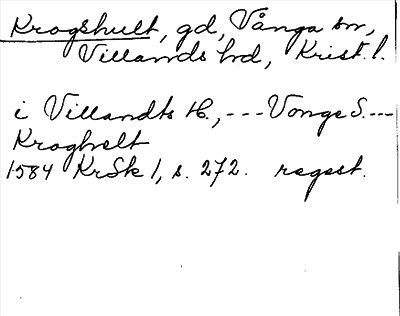 Krogshult, gd, Vånga sn,
Villands hd, Krist. l.
i Villandts H., --- Vonge S. ---
Kroghelt
1584 KrSk 1, s. 272. regest.